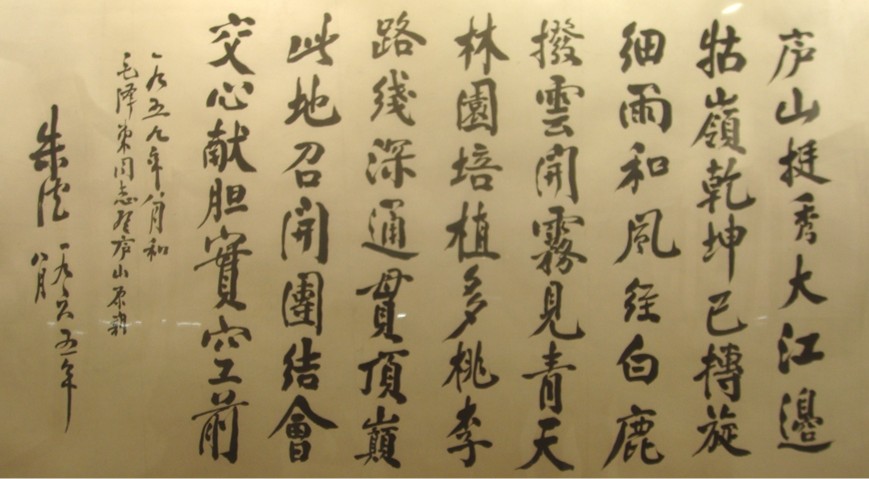 庐山挺秀大江邊
牯嶺乾坤已轉旋
细雨和風经白鹿
撥雲開霧見青天
林園培植多桃李
路綫深通貫頂巔
此地召開團结會
交心献胆實空前
一九五九年八月和
毛泽東同志登庐山原韵
朱德 一九六五年
八月